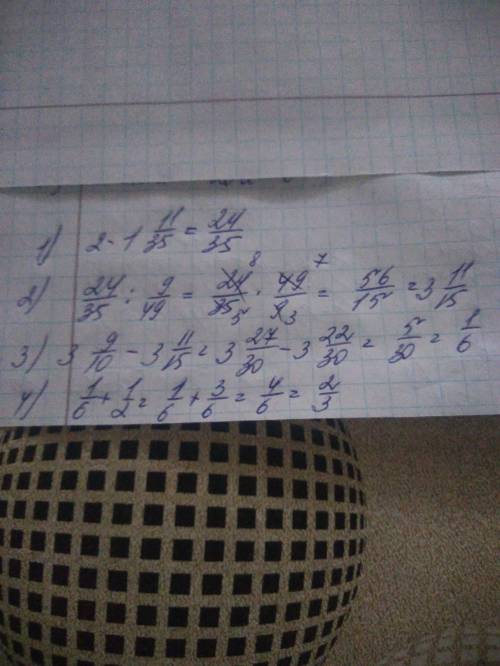 1) 2 - 1 11/35 = 24/35
2) 24/35 : 9/49 = 24 8/35 5 · 49 7/9 3 = 56/15 = 3 11/15
3) 3 9/10 - 3 11/15 = 3 27/30 - 3 22/30 = 5/30 = 1/6
4) 1/6 + 1/2 = 1/6 + 3/6 = 4/6 = 2/3